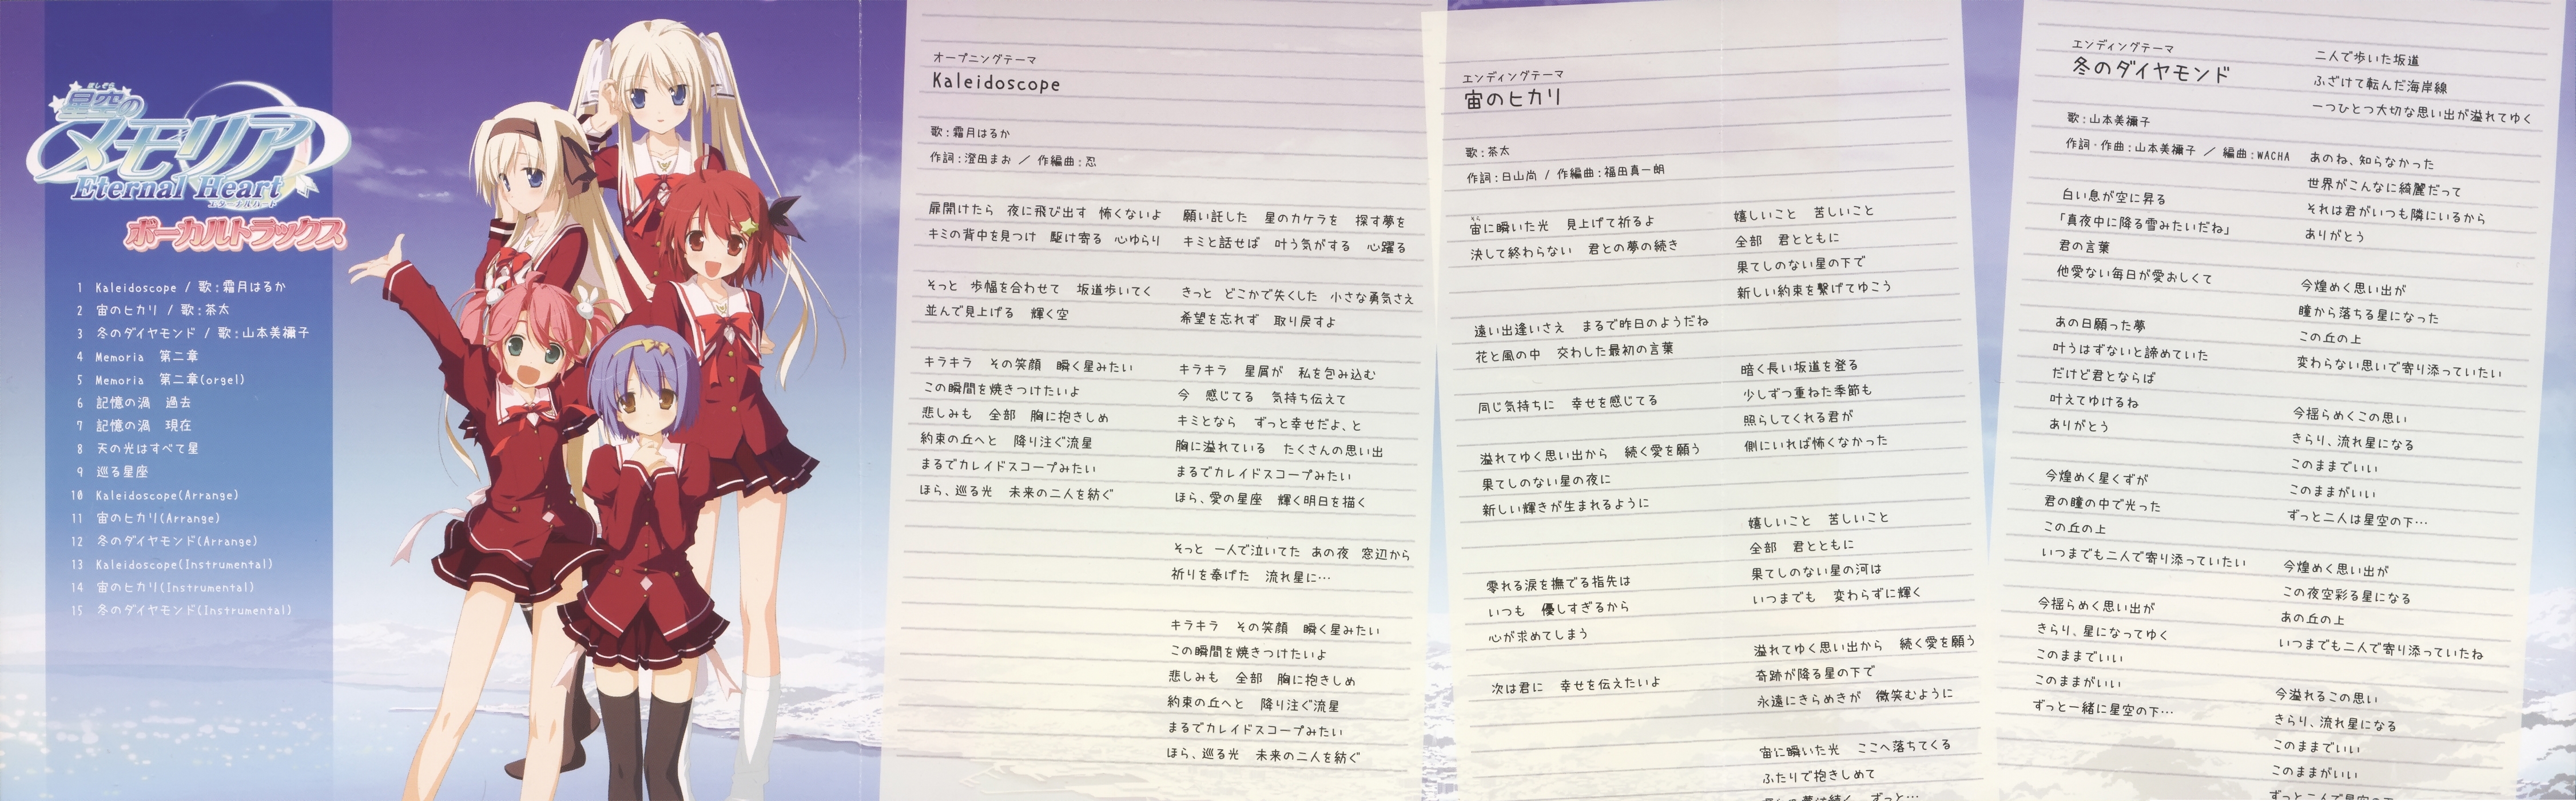 星空の
メモリア
Eternal Heart
エターナルハート
ボーカルトラックス
1 Kaleidoscope / 歌:霜月はるか
2 宙のヒカリ / 歌:茶太
3 冬のダイヤモンド / 歌:山本美禰子
4 Memoria 第二章
5 Memoria 第二章(orgel)
6 記憶の渦 過去
7 記憶の渦 現在
8 天の光はすべて星
9 巡る星座
10 Kaleidoscope(Arrange)
11 宙のヒカリ(Arrange)
12 冬のダイヤモンド(Arrange)
13 Kaleidoscope(Instrumental)
14 宙のヒカリ(Instrumental)
15 冬のダイヤモンド(Instrumental)
オープニングテーマ
Kaleidoscope
歌:霜月はるか
作詞:澄田まお / 作編曲:忍
扉開けたら 夜に飛び出す 怖くないよ
キミの背中を見つけ 駆け寄る 心ゆらり
そっと 歩幅を合わせて 坂道歩いてく
並んで見上げる 輝く空
キラキラ その笑顔 瞬く星みたい
この瞬間を焼きつけたいよ
悲しみも 全部 胸に抱きしめ
約束の丘へと 降り注ぐ流星
まるでカレイドスコープみたい
ほら、巡る光 未来の二人を紡ぐ
願い託した 星のカケラを 探す夢を
キミと話せば 叶う気がする 心躍る
きっと どこかで失くした 小さな勇気さえ
希望を忘れず 取り戻すよ
キラキラ 星屑が 私を包み込む
今 感じてる 気持ち伝えて
キミとなら ずっと幸せだよ、と
胸に溢れている たくさんの思い出
まるでカレイドスコープみたい
ほら、愛の星座 輝く明日を描く
そっと 一人で泣いてた あの夜 窓辺から
祈りを奉げた 流れ星に…
キラキラ その笑顔 瞬く星みたい
この瞬間を焼きつけたいよ
悲しみも 全部 胸に抱きしめ
約束の丘へと 降り注ぐ流星
まるでカレイドスコープみたい
ほら、巡る光 未来の二人を紡ぐ
エンディングテーマ
宙のヒカリ
歌:茶太
作詞:日山尚 / 作編曲:福田真一朗
そら
宙に瞬いた光 見上げて祈るよ
決して終わらない 君との夢の続き
遠い出逢いさえ まるで昨日のようだね
花と風の中 交わした最初の言葉
同じ気持ちに 幸せを感じてる
溢れてゆく思い出から 続く愛を願う
果てしのない星の夜に
新しい輝きが生まれるように
零れる涙を撫でる指先は
いつも 優しすぎるから
心が求めてしまう
次は君に 幸せを伝えたいよ
嬉しいこと 苦しいこと
全部 君とともに
果てしのない星の下で
新しい約束を繋げてゆこう
暗く長い坂道を登る
少しずつ重ねた季節も
照らしてくれる君が
側にいれば怖くなかった
嬉しいこと 苦しいこと
全部 君とともに
果てしのない星の河は
いつまでも 変わらずに輝く
溢れてゆく思い出から 続く愛を願う
奇跡が降る星の下で
永遠にきらめきが 微笑むように
宙に瞬いた光 ここへ落ちてくる
ふたりで抱きしめて
エンディングテーマ
冬のダイヤモンド
歌:山本美禰子
作詞・作曲:山本美禰子 / 編曲:WACHA
白い息が空に昇る
「真夜中に降る雪みたいだね」
君の言葉
他愛ない毎日が愛おしくて
あの日願った夢
叶うはずないと諦めていた
だけど君とならば
叶えてゆけるね
ありがとう
今煌めく星くずが
君の瞳の中で光った
この丘の上
いつまでも二人で寄り添っていたい
今揺らめく思い出が
きらり、星になってゆく
このままでいい
このままがいい
ずっと一緒に星空の下…
二人で歩いた坂道
ふざけて転んだ海岸線
一つひとつ大切な思い出が溢れてゆく
あのね、知らなかった
世界がこんなに綺麗だって
それは君がいつも隣にいるから
ありがとう
今煌めく思い出が
瞳から落ちる星になった
この丘の上
変わらない思いで寄り添っていたい
今揺らめくこの思い
きらり、流れ星になる
このままでいい
このままがいい
ずっと二人は星空の下…
今煌めく思い出が
この夜空彩る星になる
あの丘の上
いつまでも二人で寄り添っていたね
今溢れるこの思い
きらり、流れ星になる
このままでいい
このままがいい